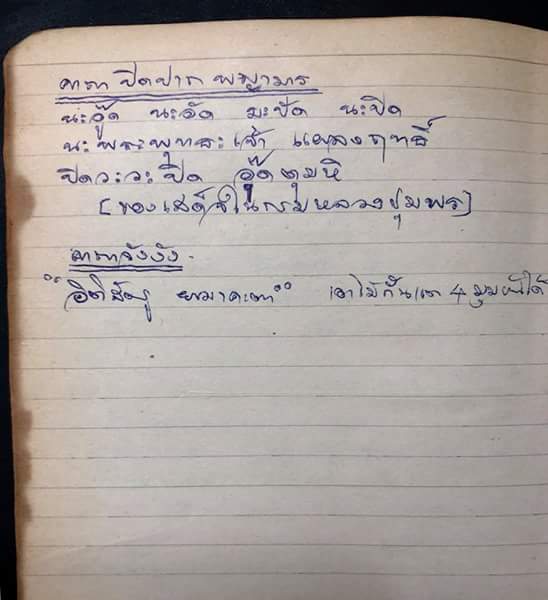 คาถา ปิดปาก พญามาร
นะอุ๊ด นะอัด มะปัด นะปิด
นะ พระพุทธะเจ้า แผลงฤทธิ์
ปิดวะวะปิด อุ๊ดตุมหิ
[ของเสด็จในกรมหลวงชุมพร]
คาถาจังงัง
"อิติสัมฺ ยมาคะตา" เอาไม้กั้น 4 มุม ได้